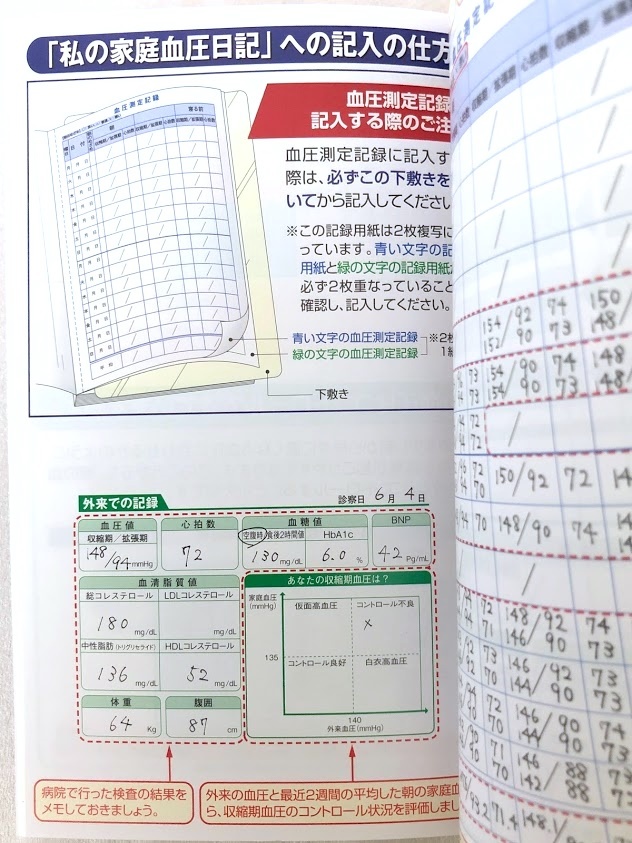 「私の家庭血圧日記」への記入の仕方
血圧測定記録
血圧測定記録
記入する際のご注
血圧測定記録に記入す
際は、必ずこの下敷きを
いてから記入してください
※この記録用紙は2枚複写に
っています。青い文字の記
用紙と緑の文字の記録用紙が
必ず2枚重なっていること
確認し、記入してください。
青い文字の血圧測定記録
緑の文字の血圧測定記録
※2枚
1組
下敷き
外来での記録
診察日 6月 4日
血圧値
収縮期/拡張期
148/94 mmHg
心拍数
72
血糖値
空腹時/食後2時間値
130 mg/dL
HbA1c
6.0 %
BNP
42 Pg/mL
血清脂質値
総コレステロール
180 mg/dL
LDLコレステロール
mg/dL
中性脂肪(トリグリセライド)
136 mg/dL
HDLコレステロール
52 mg/dL
体重
64 Kg
腹囲
87 cm
あなたの収縮期血圧は?
家庭血圧
(mmHg)
仮面高血圧
コントロール不良
×
135
コントロール良好
白衣高血圧
140
外来血圧(mmHg)
病院で行った検査の結果を
メモしておきましょう。
外来の血圧と最近2週間の平均した朝の家庭血
ら、収縮期血圧のコントロール状況を評価しまし
測定記録
心拍数 収縮期/拡張期 心拍数 収縮期
154/92 74 150
152/90 73 148/
73 154/90 74 148
72 154/90 73 148/
/
72 150/92 72 14
70
94 70 148/90 74 14
72 148/92 74
71 146/90 73
72 146/92 73
70 144/90 73
72 146/90 74
70 144/90 73
71 146/88 73
70 142/88 73
93.2 71.4 148.1/